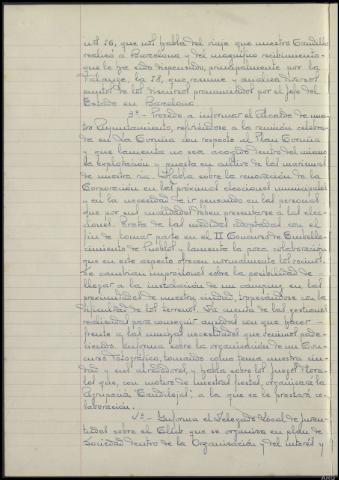 nº 16, que nos habla del viaje que nuestro Caudillo
realizó a Barcelona y del magnífico recibimiento
que le ha sido dispensado, principalmente por la
Falange, la 18, que resume y analiza diversos
puntos de los discursos pronunciados por el Jefe del
Estado en Barcelona.
3º.- Procede a informar el Alcalde de nues-
tro Ayuntamiento, refiriéndose a la reunión celebra-
da en La Coruña con respecto al Plan Coruña
y que lamenta no sea acogida dentro del mismo
la explotación y puesta en cultivo de las marismas
de nuestra ría. Habla sobre la renovación de la
Corporación en las próximas elecciones municipales
y en la necesidad de ir pensando en las personas
que por sus cualidades deben presentarse a las elec-
ciones. Trata de las medidas adoptadas con el
fin de tomar parte en el II Concurso de Embelle-
cimiento de Pueblos y lamenta la poca colaboración
que en este aspecto ofrecen normalmente los vecinos.
Se cambian impresiones sobre la posibilidad de
llegar a la instalación de un camping en las
proximidades de nuestra ciudad, tropezándose con la
de los terrenos. Da cuenta de las gestiones
realizadas para conseguir auxilios con que hacer
frente a las muchas necesidades que venimos pade-
ciendo. Informa sobre la organización de un Con-
curso Fotográfico, tomando como tema nuestra ciu-
dad y sus alrededores, y habla sobre los Juegos Flora-
les que, con motivo de nuestras fiestas, organizará la
Agrupación "Candilejas", a la que se le prestará co-
laboración.
5º.- Informa el Delegado Local de Juven-
tudes sobre el Club que se organiza en plan de
Sociedad dentro de la Organización y del interés y